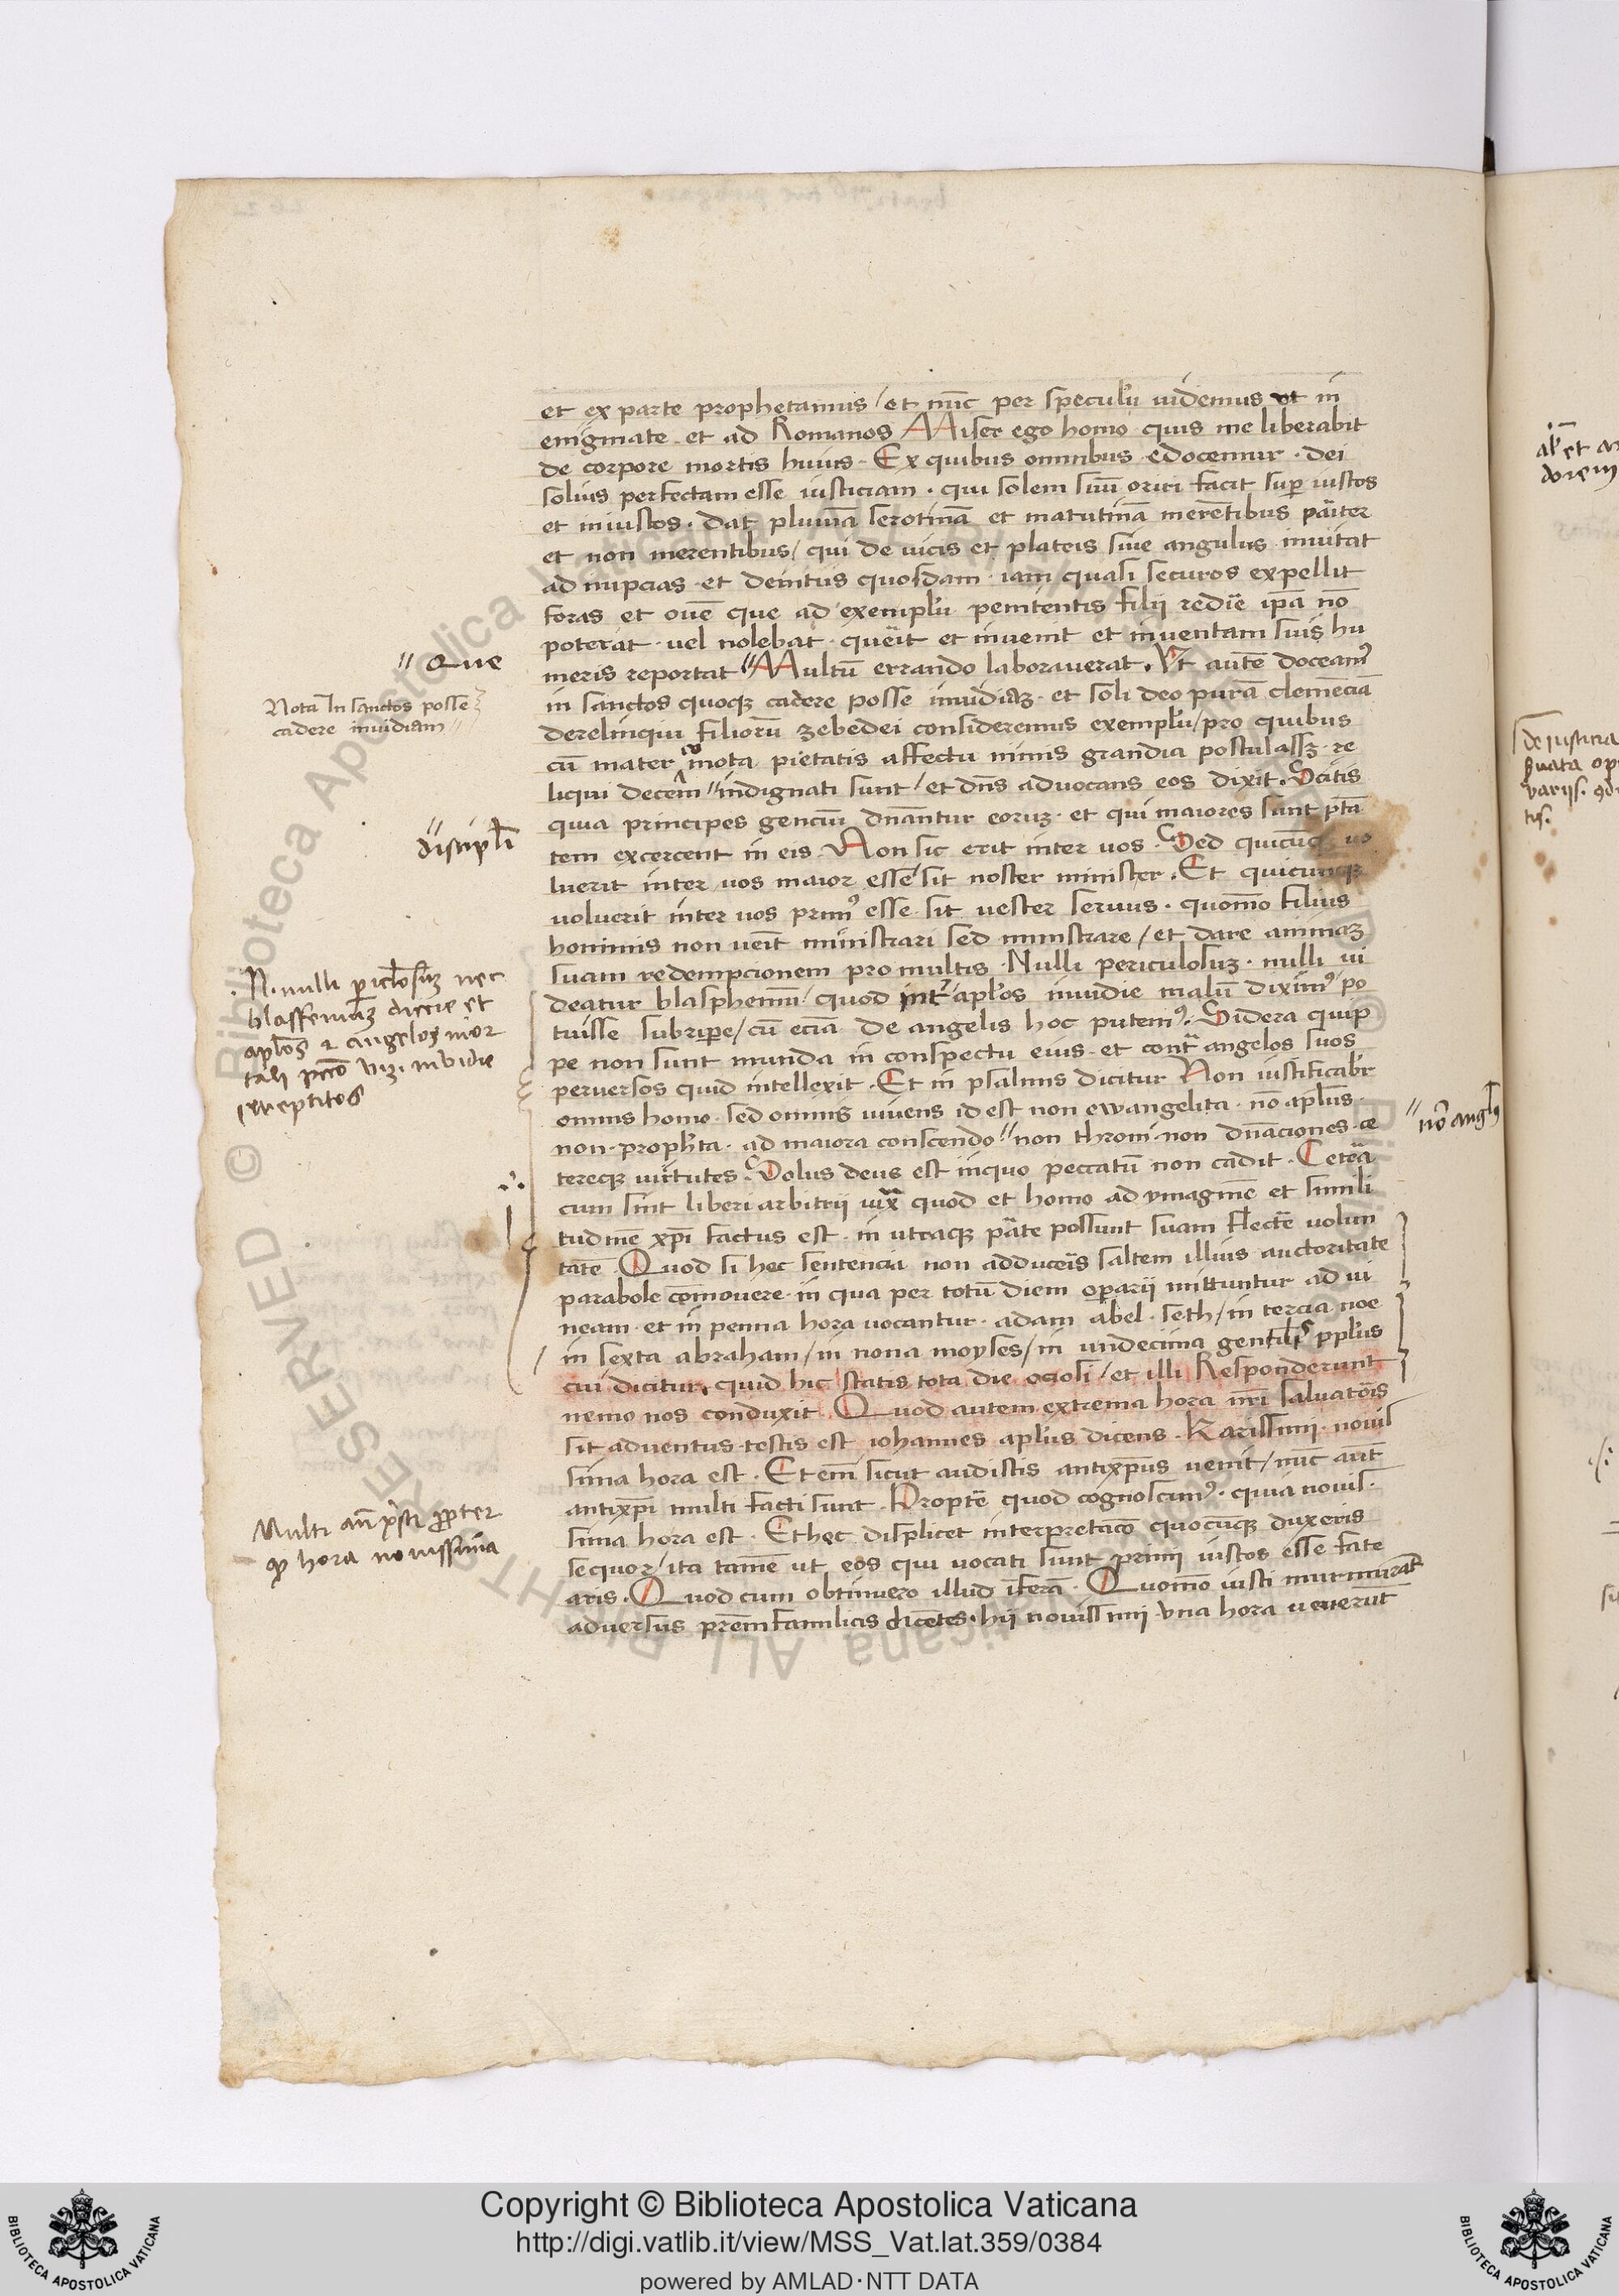 et ex parte prophetamus / et nu̅c per speculu̅ uidemus ut in
enigmate · et ad Romanos Miser ego homo · quis me liberabit
de corpore mortis huius · Ex quibus omnibus · edocemur · dei
solius perfectam esse iusticiam · qui solem suu̅ oriri facit sup̅ iustos
et iniustos · dat pluuia̅ serotina̅ et matutina̅ mere̅tibus pa̅iter
et non merentibus / qui de uicis et plateis siue angulus inuitat
ad nupcias · et deintus quosdam · iam quasi securos expellit
foras et oue̅ que ad exemplu̅ penitentis filij redi̅e ip̅a no̅
poterat · uel nolebat · que̅it et inuenit et inuentam suis hu
meris reportat " Multu̅ errando laborauerat · Vt aute̅ doceam⁹
in sanctos quoqꝫ cadere posse inuidiaꝫ · et soli deo pura̅ cleme̅cia̅
derelinqui filioru̅ zebedei consideremus exemplu̅ / pro quibus
cu̅ mater mota pietatis affectu nimis grandia postulassꝫ · re
liqui decem " indignati sunt / et dn̅s aduocans eos dixit · Scitis
quia principes genciu̅ dn̅antur eoruꝫ · et qui maiores sunt pt̅a
tem excercent in eis · Non sic erit inter uos · Sed quicu̅qꝫ uo
luerit inter uos maior esse sit noster minister · Et quicunqꝫ
voluerit inter uos prim⁹ esse · sit uester seruus · quom̅o filius
hominis non ue̅it ministrari sed ministrare / et dare animaꝫ
suam redempcionem pro multis · Nulli periculosuꝫ · nulli ui
deatur blasphemu̅ / quod int̅ apl̅os inuidie malu̅ dixim⁹ po
tuisse subripe̅ / cu̅ ecia̅ de angelis hoc putem⁹ · Sidera quip
pe non sunt munda in conspectu eius · et cont̅ angelos suos
peruersos quid intellexit · Et in psalmis dicitur Non iustificabr̅
omnis homo · sed omnis uiuens id est non ewangelita · no̅ apl̅us ·
non · proph̅ta · ad maiora conscendo " non throni · non dn̅aciones · ce
tereqꝫ uirtutes · Solus deus est inquo peccatu̅ non cadit · Cete̅a
cum sint liberi arbitrij iuxa quod et homo ad ymagine̅ et simili
tudine̅ xp̅i factus est · in utraqꝫ pa̅te possunt suam flecte̅ uolun
tate̅ Quod si hec sentencia non adduce̅is saltem illius auctoritate
parabole co̅mouere · in qua per totu̅ diem op̅arii mittuntur ad ui
neam · et in penna hora uocantur · adam abel · seth / in tercia noe
in sexta abraham / in nona moyses / in undecima gentil̅s ppl̅us
cui dicitur · quid hic statis tota die ociosi / et illi Responderunt
nemo nos conduxit · Quod autem extrema hora nr̅i saluato̅is
sit aduentus · testis est iohannes apl̅us dicens · Karissimi · nouis
sima hora est · Et eni̅ sicut audistis antixp̅us uenit / nu̅c aut̅
antixp̅i multi facti sunt · Propte̅ quod cognoscim⁹ · quia nouis
sima hora est · Et hęc displicet interpretac̅o quocu̅qꝫ duxeris
sequor / ita tame̅ ut eos qui uocati sunt primi iustos esse fate
aris · Quod cum obtinuero illud i̅fera̅ · Quom̅o iusti murmura̅t
aduersus pr̅em familias dice̅tes · hij nouissimi · vna hora uenerūt
" Que
Nota In sanctos posse
cadere inuidiam "
" discipl̅i
· N · nulli p̅icl̅osuꝫ nec
blassemuꝫ dicere et
apl̅os & angelos mor
tali pcc̅o viꝫ · invidie
irreptitos
" no̅ angl̅s
Multi an̅ xp̅sti p̅pter
q̅ hora nouissima
al̅ et
dorem
de iusticia
varijs ·